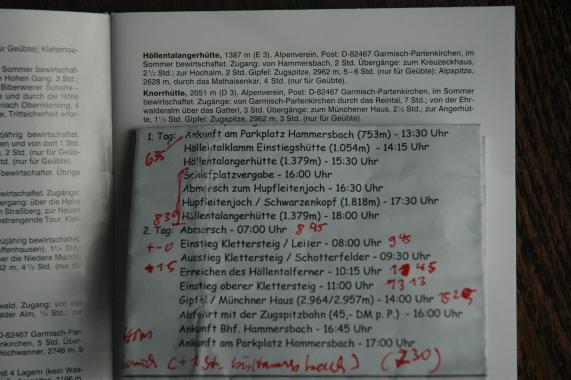 für Geübte); Kletterlou-
Sommer bewirtschaf-
Hohen Gang, 3 Std.;
Biberwierer Scharte –
und durch die Hölle
nach Obermieming, 4
Trittsicherheit erfor-
bewirtschaftet.
und von dort 1 Std.
2 Std. (nur für Geüb-
(nur für Geübte).
bewirtschaftet. Übrige
wirtschaftet. Zugänge:
ergang: über die Hohe
Straßberg, zur Neuen
strengende Tour, Klet-
bewirtschaftet.
1¼ Std.;
die Niedere Munde,
62 m, 4½ Std. (nur für
wald. Zugang: von der
alder Alm, ¼ Std.;
D-82467 Garmisch-Par-
nkirchen, 5 Std. Über-
Hochwanner, 2746 m, 5
mit 4 Lagern (kein Was-
Höllentalangerhütte, 1387 m (E 3), Alpenverein, Post: D-82467 Garmisch-Partenkirchen, im
Sommer bewirtschaftet. Zugang: von Hammersbach, 2 Std. Übergänge: zum Kreuzeckhaus,
2½ Std.; zur Hochalm, 2 Std. Gipfel: Zugspitze, 2962 m, 5–6 Std. (nur für Geübte); Alpspitze,
2628 m, durch das Mathaisenkar, 4 Std. (nur für Geübte).
Knorrhütte, 2051 m (D 3), Alpenverein, Post: D-82467 Garmisch-Partenkirchen, im Sommer
bewirtschaftet. Zugänge: von Garmisch-Partenkirchen durch das Reintal, 7 Std.; von der Ehr-
walderalm über das Gatterl, 3 Std. Übergänge: zum Münchener Haus, 2½ Std.; zur Angerhüt-
te, 1½ Std. Gipfel: Zugspitze, 2962 m, 3 Std. (nur für Geübte).
1. Tag: Ankunft am Parkplatz Hammersbach (753m) - 13:30 Uhr
Höllentalklamm Einstiegshütte (1.054m) - 14:15 Uhr
Höllentalangerhütte (1.379m) - 15:30 Uhr
Schlafplatzvergabe - 16:00 Uhr
Abmarsch zum Hupfleitenjoch - 16:30 Uhr
Hupfleitenjoch / Schwarzenkopf (1.818m) - 17:30 Uhr
830 Höllentalangerhütte (1.379m) - 18:00 Uhr
2. Tag: Abmarsch - 07:00 Uhr 845
+-0 Einstieg Klettersteig / Leiter - 08:00 Uhr 945
Ausstieg Klettersteig / Schotterfelder - 09:30 Uhr
+15 Erreichen des Höllentalferner - 10:15 Uhr 1145
Einstieg oberer Klettersteig - 11:00 Uhr 1313
Gipfel / Münchner Haus (2.964/2.957m) - 14:00 Uhr
Abfahrt mit der Zugspitzbahn (45,- DM p. P.) - 16:00 Uhr
Ankunft Bhf. Hammersbach - 16:45 Uhr
Ankunft am Parkplatz Hammersbach - 17:00 Uhr
(+1 St. bis Hammersbach) (730)